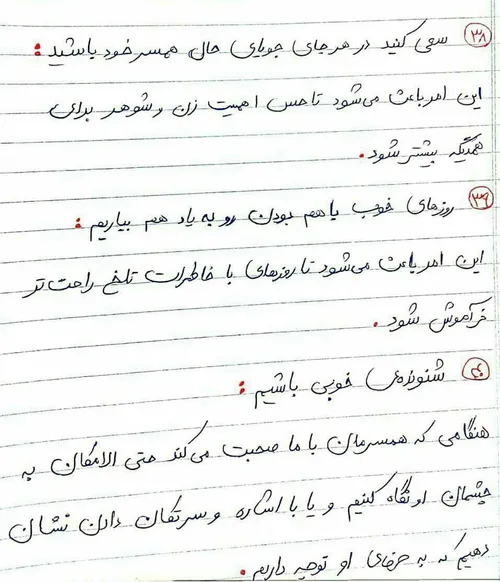 ۳۸ سعی کنید در هر جای جویای حال همسر خود باشید :
این امر باعث می‌شود تا حس اهمیت زن و شوهر برای
همدیگه بیشتر شود.
۳۹ روزهای خوب با هم بودن رو به یاد هم بیاریم :
این امر باعث می‌شود تا روزهای با خاطرات تلخ راحت تر
فرآموش شود.
۴۰ شنونده‌ی خوبی باشیم :
هنگامی که همسرمان با ما صحبت می‌کند حتی الامکان به
چشمان او نگاه کنیم و یا با اشاره و سر تکان دادن نشان
دهیم که به حرفای او توجه داریم.